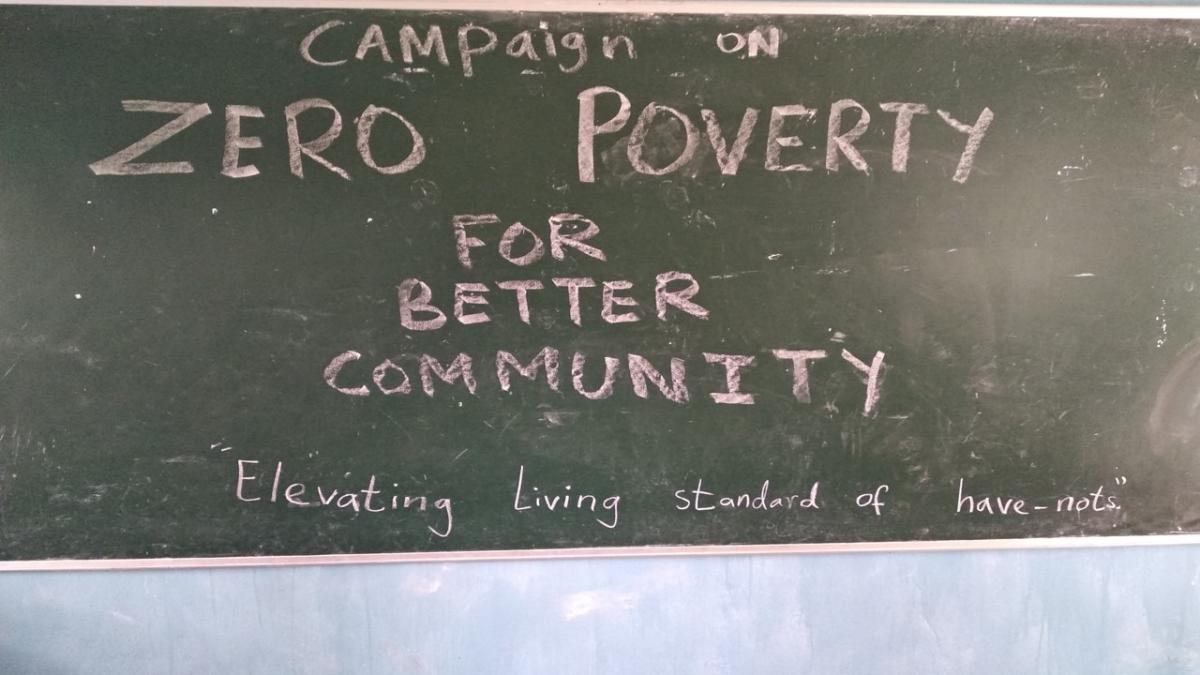 CAMPaign ON
ZERO POVERTY
FOR
BETTER
COMMUNITY
"Elevating Living standard of have-nots."